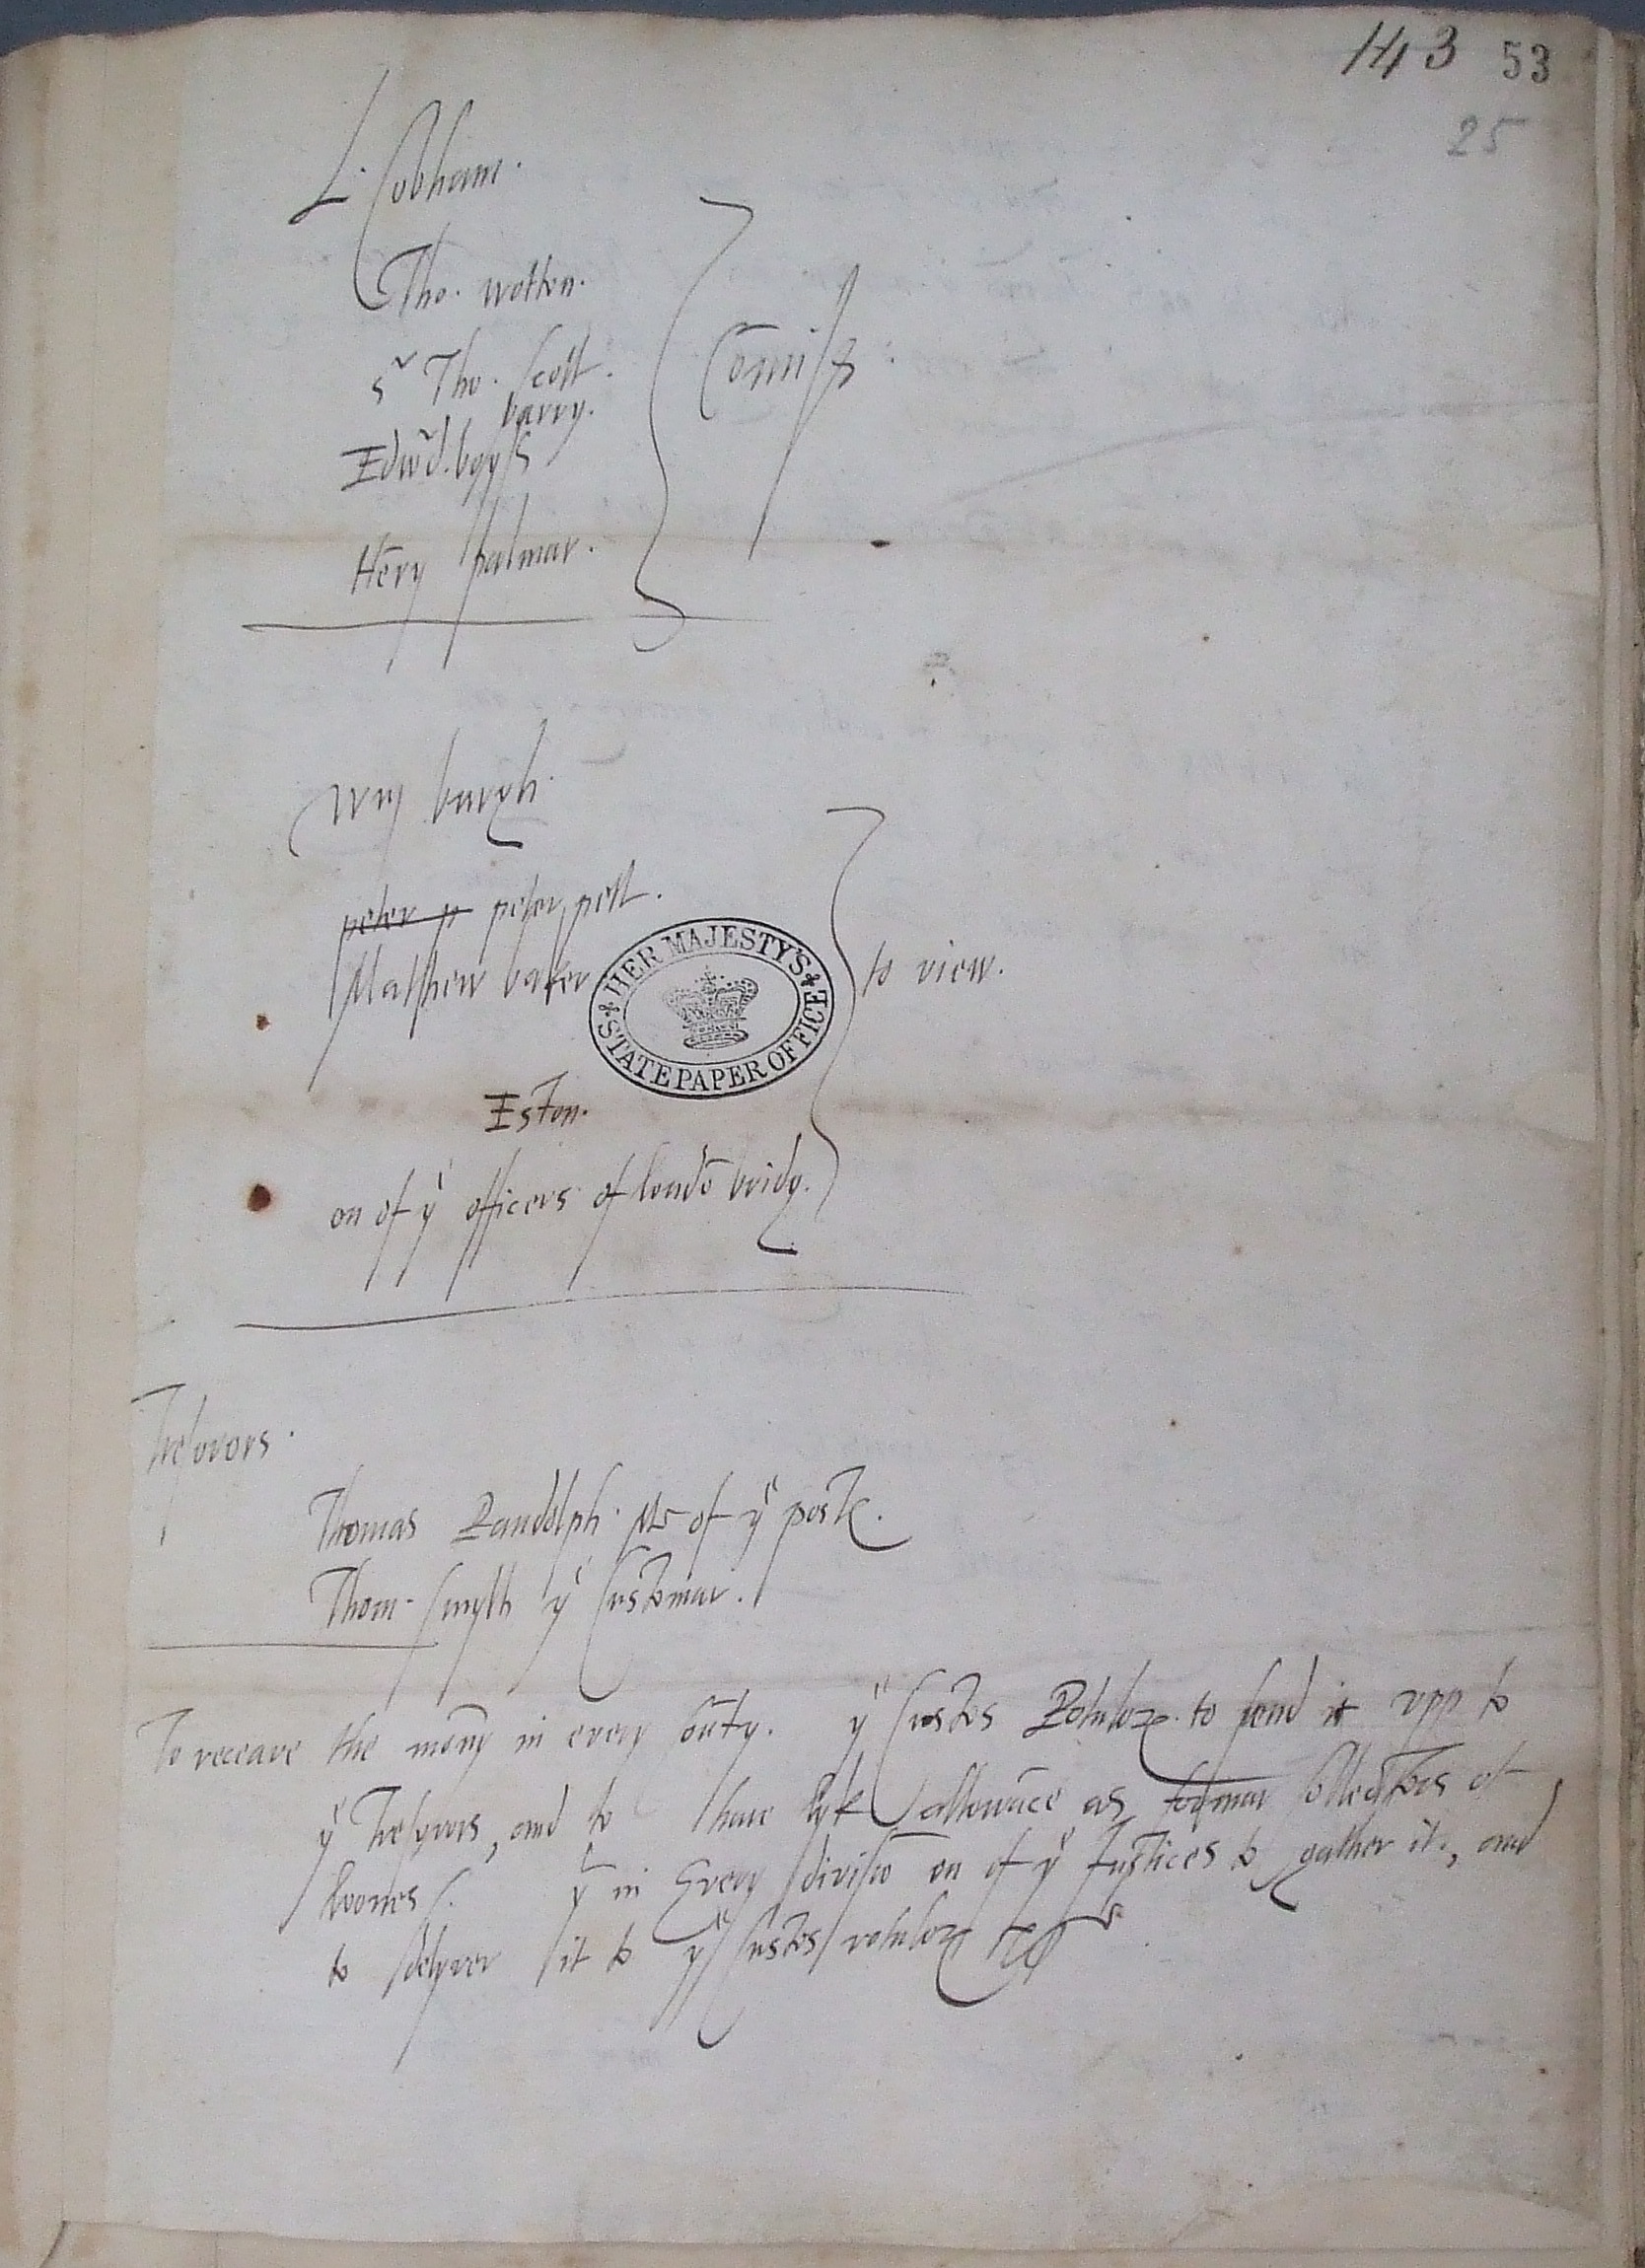 143 53
25
L. Cobham.
Tho. wotton.
Sr Tho. Scott.
barry.
Edwd. boyss
Hēry palmar.
Comiss:
Wm burgh.
peter p peter pett.
Matthew baker
to view.
HER MAJESTY'S STATE PAPER OFFICE
Eston.
on of ye officers of londō bridg.
Tresorors.
Thomas Randolph Mr of ye poste.
Thom. Smyth ye Customar.
To receave the mony in every coūty. ye Custos Rotulorum to send it vpp to
ye Tresorors, and to have lyk allowāce as formar collectors of
loones. yt in Every divisiō on of ye Justices to gather it, and
to delyver it to ye Custos rotulorum